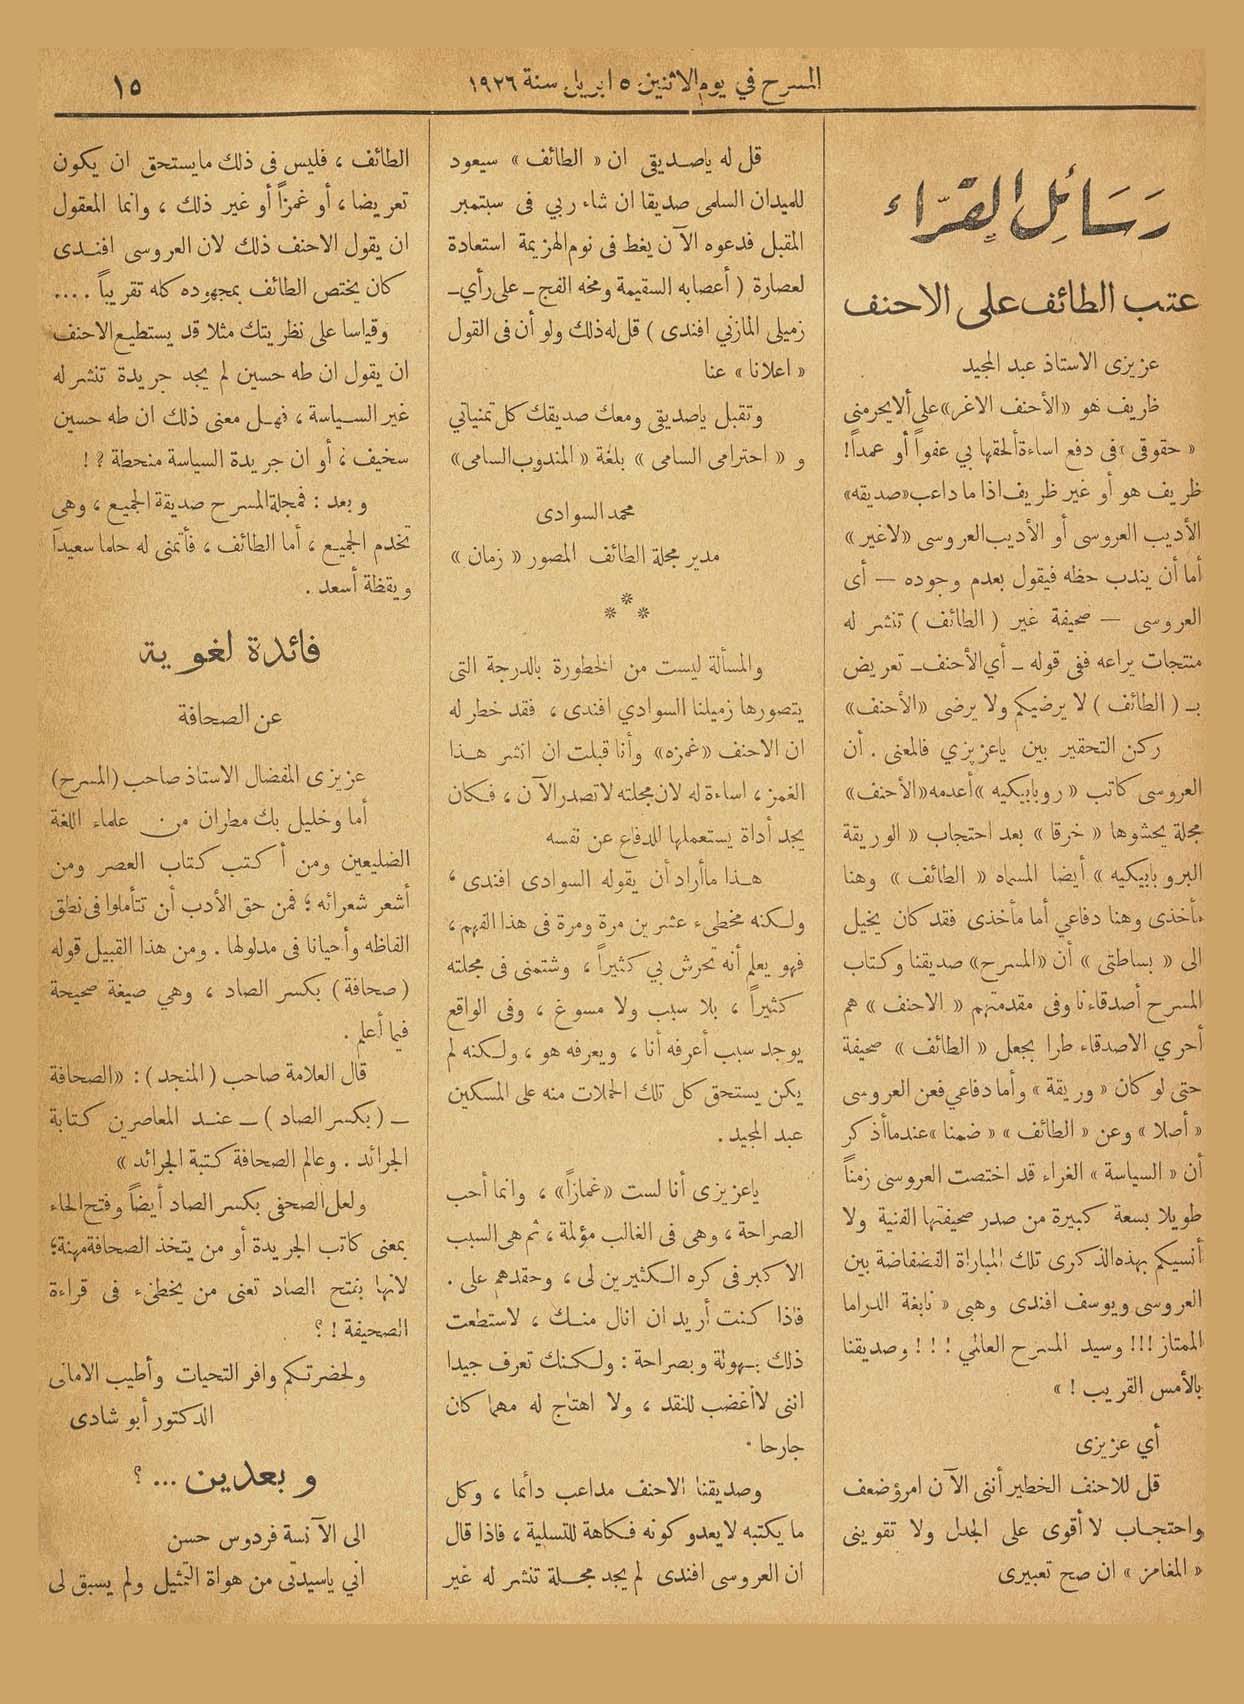 المسرح في يوم الاثنين ٥ ابريل سنة ١٩٢٦
١٥
رَسَائِل القرّاء
عتب الطائف على الاحنف
عزيزى الاستاذ عبد المجيد
ظريف هو «الأحنف الاغر» على ألا يحرمنى
« حقوقى » فى دفع اساءة ألحقها بي عفواً أو عمداً!
ظريف هو أو غير ظريف اذا ما داعب «صديقه»
الأديب العروسى أو الأديب العروسى «لاغير »
أما أن يندب حظه فيقول بعدم وجوده — أى
العروسى — صحيفة غير ( الطائف ) تنشر له
منتجات يراعه ففى قوله ـ أي الأحنف ـ تعريض
بـ ( الطائف ) لا يرضيكم ولا يرضى «الأحنف»
ركن التحقير بين ياعزيزي فالمعنى . أن
العروسى كاتب « روبابيكيه » أعدمه «الأحنف»
مجلة يحشوها « خرقا » بعد احتجاب « الوريقة
البروبابيكيه » أيضا المسماه « الطائف » وهنا
مأخذى وهنا دفاعي أما مأخذى فقد كان يخيل
الى « بساطتى » أن «المسرح» صديقنا وكتاب
المسرح أصدقاءنا وفى مقدمتهم « الاحنف » هم
أحري الاصدقاء طرا بجعل « الطائف » صحيفة
حتى لو كان « وريقة » وأما دفاعي فعن العروسى
« أصلا » وعن « الطائف » « ضمنا » عندما أذكر
أن « السياسة » الغراء قد اختصت العروسى زمناً
طويلا بسعة كبيرة من صدر صحيفتها الفنية ولا
أنسيكم بهذه الذكرى تلك المباراة الفضفاضة بين
العروسى ويوسف افندى وهبى « نابغة الدراما
الممتاز !!! وسيد المسرح العالمي ! ! ! وصديقنا
بالأمس القريب ! »
أي عزيزى
قل للاحنف الخطير أننى الآن امرؤ ضعف
واحتجاب لا أقوى على الجدل ولا تقوينى
« المغامز » ان صح تعبيرى
قل له ياصديقى ان « الطائف » سيعود
للميدان السلمى صديقا ان شاء ربي فى سبتمبر
المقبل فدعوه الآن يغط فى نوم الهزيمة استعادة
لعصارة ( أعصابه السقيمة ومخه الفج ـ على رأي ـ
زميلى المازنى افندى ) قل له ذلك ولو أن فى القول
« اعلانا » عنا
وتقبل ياصديقى ومعك صديقك كل تمنياتي
و « احترامى السامى » بلغة « المندوب السامى»
محمد السوادى
مدير مجلة الطائف المصور « زمان »
***
والمسألة ليست من الخطورة بالدرجة التى
يتصورها زميلنا السوادي افندى ، فقد خطر له
ان الاحنف «غمزه» وأنا قبلت ان انشر هذا
الغمز ، اساءة له لان مجلته لا تصدر الآن ، فكان
يجد أداة يستعملها للدفاع عن نفسه
هذا ما أراد أن يقوله السوادى افندى ،
ولكنه مخطىء عشرين مرة ومرة فى هذا الفهم ،
فهو يعلم أنه تحرش بي كثيراً ، وشتمنى فى مجلته
كثيراً ، بلا سبب ولا مسوغ ، وفى الواقع
يوجد سبب أعرفه أنا ، ويعرفه هو ، ولكنه لم
يكن يستحق كل تلك الحملات منه على المسكين
عبد المجيد .
ياعزيزى أنا لست «غمازاً» ، وانما أحب
الصراحة ، وهى فى الغالب مؤلمة ، ثم هى السبب
الاكبر فى كره الكثيرين لى ، وحقدهم على .
فاذا كنت أريد ان انال منك ، لاستطعت
ذلك بسهولة وبصراحة : ولكنك تعرف جيدا
اننى لا أغضب للنقد ، ولا اهتاج له مهما كان
جارحا .
وصديقنا الاحنف مداعب دأئما ، وكل
ما يكتبه لا يعدو كونه فكاهة للتسلية ، فاذا قال
ان العروسى افندى لم يجد مجلة تنشر له غير
الطائف ، فليس فى ذلك ما يستحق ان يكون
تعريضا ، أو غمزاً أو غير ذلك ، وانما المعقول
ان يقول الاحنف ذلك لان العروسى افندى
كان يختص الطائف بمجهوده كله تقريباً ....
وقياسا على نظريتك مثلا قد يستطيع الاحنف
ان يقول ان طه حسين لم يجد جريدة تنشر له
غير السياسة ، فهل معنى ذلك ان طه حسين
سخيف ، أو ان جريدة السياسة منحطة ؟ !
وبعد : فمجلة المسرح صديقة الجميع ، وهى
تخدم الجميع ، أما الطائف ، فأتمنى له حلما سعيداً
ويقظة أسعد .
فائدة لغوية
عن الصحافة
عزيزى المفضال الاستاذ صاحب (المسرح)
أما وخليل بك مطران من علماء اللغة
الضليعين ومن أكتب كتاب العصر ومن
أشعر شعرائه ؛ فمن حق الأدب أن تتأملوا فى نطق
الفاظه وأحيانا فى مدلولها . ومن هذا القبيل قوله
(صحافة) بكسر الصاد ، وهي صيغة صحيحة
فيما أعلم .
قال العلامة صاحب (المنجد) : «الصحافة
ـ (بكسر الصاد) ـ عند المعاصرين كتابة
الجرائد . وعالم الصحافة كتبة الجرائد »
ولعل الصحفى بكسر الصاد أيضاً وفتح الحاء
بمعنى كاتب الجريدة أو من يتخذ الصحافة مهنة ؛
لانها بفتح الصاد تعنى من يخطىء فى قراءة
الصحيفة ! ؟
ولحضرتكم وافر التحيات وأطيب الامانى
الدكتور أبو شادى
وبعدين ... ؟
الى الآنسة فردوس حسن
اني ياسيدتى من هواة التمثيل ولم يسبق لى